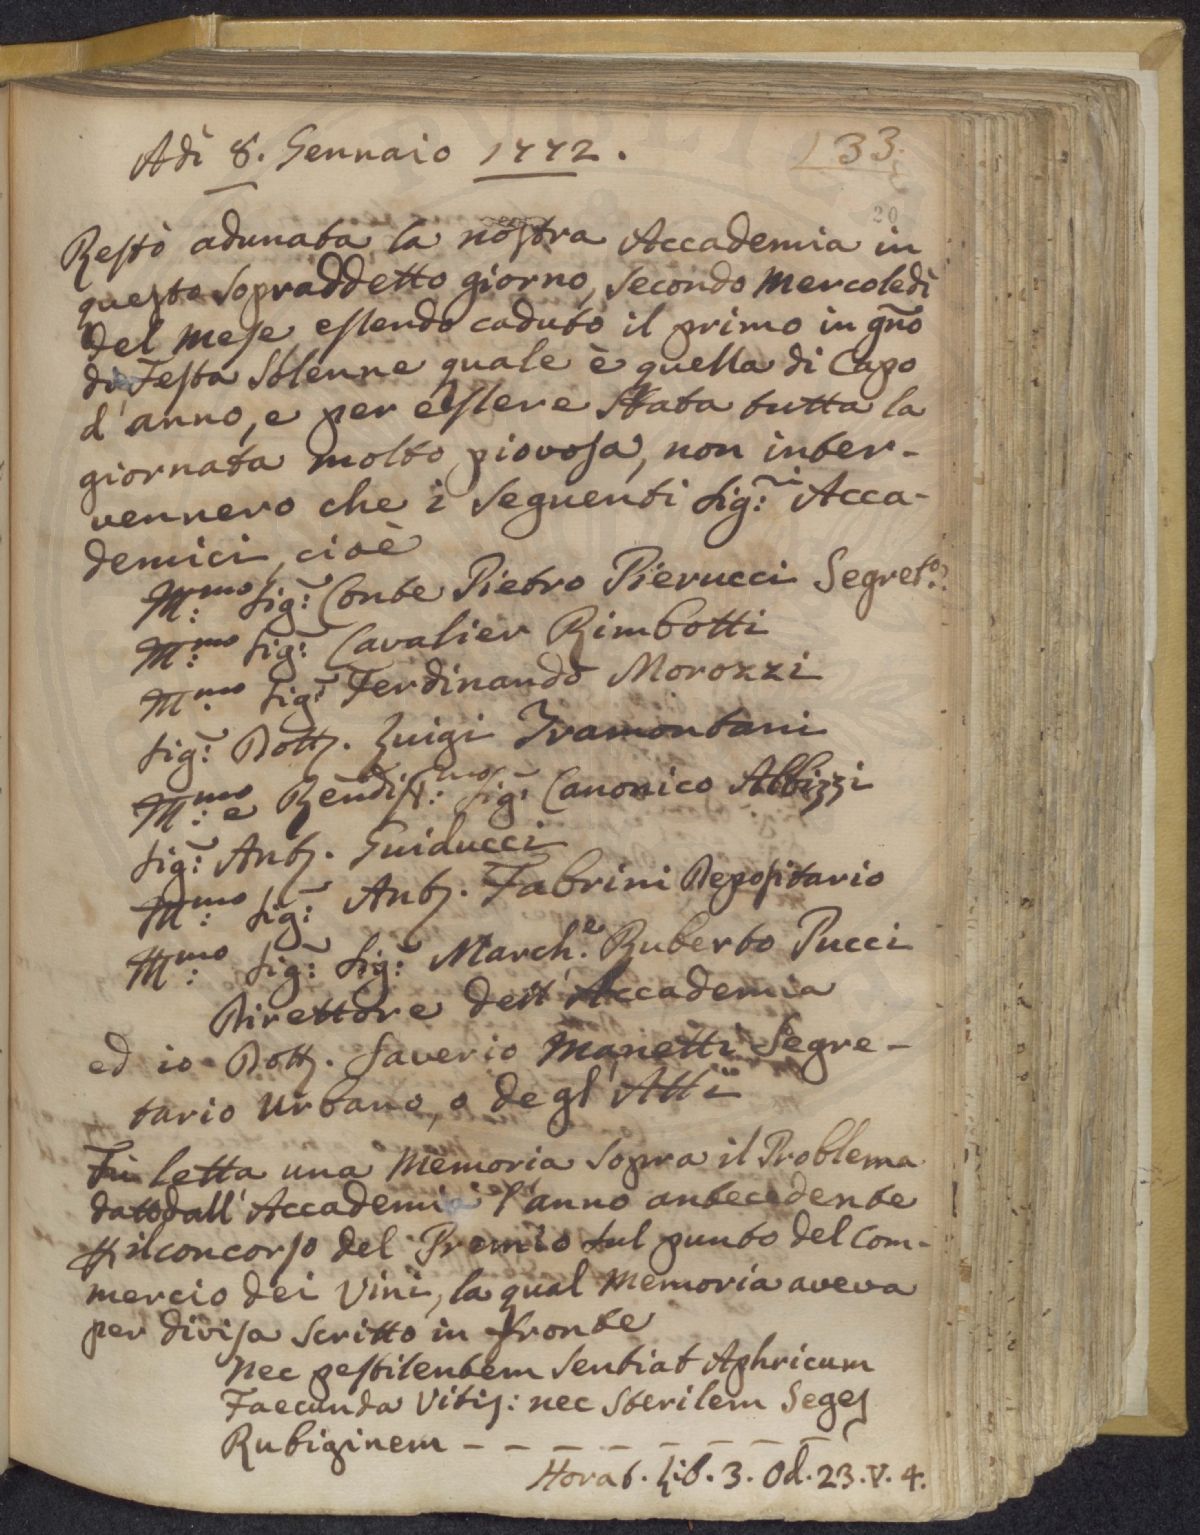 Adì 8. Gennaio 1772.
133.
20
Restò adunata la nostra Accademia in
questo sopraddetto giorno, secondo Mercoledì
del Mese essendo caduto il primo in gno
di Festa Solenne quale è quella di Capo
d'anno, e per essere stata tutta la
giornata molto piovosa, non inter-
vennero che i seguenti Sig:ri Acca-
demici, cioè
Ill:mo Sig: Conte Pietro Pierucci Segret:o
Ill:mo Sig: Cavalier Rimbotti
Ill:mo Sig: Ferdinando Morozzi
Sig: Dott. Luigi Tramontani
Ill:mo e Rendiss:mo Sig: Canonico Albizzi
Sig: Ant. Guiducci
Ill:mo Sig: Ant. Fabrini Depositario
Ill:mo Sig: Sig: March:e Ruberto Pucci
Direttore dell'Accademia
ed io Dott. Saverio Manetti Segre-
tario Urbano, o degl'Atti
Fù letta una Memoria sopra il Problema
dato dall'Accademia l'anno antecedente
per il concorso del Premio sul punto del Com-
mercio dei Vini, la qual Memoria aveva
per divisa scritto in fronte
Nec pestilentem sentiat Aphricum
Faecunda Vitis: nec sterilem Seges
Rubiginem - - - - - - - -
Horat. Lib. 3. Od. 23. V. 4.